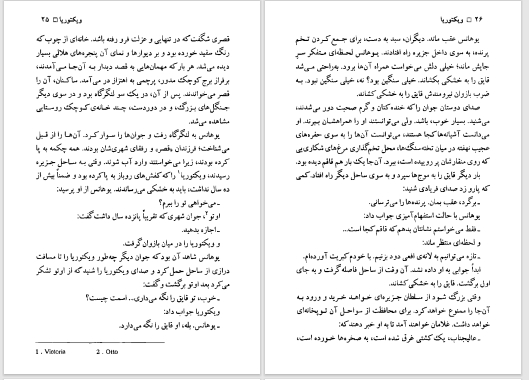 ویکتوریا □ ۲۵
قصری شگفت که در تنهایی و عزلت فرو رفته باشد. خانه‌ای از چوب که
رنگ سفید خورده بود و بر دیوارها و نمای آن پنجره‌های هلالی بسیار
دیده می‌شد. هر بار که مهمان‌هایی به قصد دیدار به آن‌جا می‌آمدند،
برفراز برج کوچک مدور، پرچمی به اهتزاز در می‌آمد. ساکنان، آن را
قصر می‌خواندند. پس از آن، در یک سو لنگرگاه بود و در سوی دیگر
جنگل‌های بزرگ، و در دوردست، چند خانه‌ی کوچک روستایی
مشاهده می‌شد.
یوهانس به لنگرگاه رفت و جوان‌ها را سوار کرد. آن‌ها را از قبل
می‌شناخت؛ فرزندان «قصر» و رفقای شهری‌شان بودند. همه چکمه به پا
کرده بودند، زیرا می‌خواستند وارد آب شوند. وقتی به ساحل جزیره
رسیدند، ویکتوریا۱ را که کفش‌های روباز به پا کرده بود و ضمناً بیش از
ده سال نداشت، باید به خشکی می‌رساندند. یوهانس از او پرسید:
ـ می‌خواهی تو را ببرم؟
اوتو۲، جوان شهری که تقریباً پانزده سال داشت گفت:
ـ اجازه بدهید.
و ویکتوریا را در میان بازوان گرفت.
یوهانس شاهد آن بود که جوان دیگر چه‌طور ویکتوریا را تا مسافت
درازی از ساحل حمل کرد و صدای ویکتوریا را شنید که از اوتو تشکر
می‌کرد بعد اوتو برگشت و گفت:
ـ خوب، تو قایق را نگه می‌داری.. اسمت چیست؟
ویکتوریا جواب داد:
ـ یوهانس. بله، او قایق را نگه می‌دارد.
1 . Victoria 2 . Otto
۲۶ □ ویکتوریا
یوهانس عقب ماند. دیگران، سبد به دست، برای جمع‌کردن تخم
پرنده، به سوی داخل جزیره راه افتادند. یوهانس لحظه‌ای متفکر سر
جایش ماند؛ خیلی دلش می‌خواست همراه آن‌ها برود. به‌راحتی می‌شد
قایق را به خشکی بکشاند. خیلی سنگین بود؟ نه، خیلی سنگین نبود. به
ضرب بازوان نیرومندش قایق را به خشکی کشاند.
صدای دوستان جوان را که خنده‌کنان و گرم صحبت دور می‌شدند،
می‌شنید. بسیار خوب، باشد. ولی می‌توانستند او را همراهشان ببرند. او
می‌دانست آشیانه‌ها کجا هستند، می‌توانست آن‌ها را به سوی حفره‌های
عجیب نهفته در میان تخته‌سنگ‌ها، محل تخم‌گذاری مرغ‌های شکاری‌یی
که روی منقارشان پر روییده است، ببرد. آن‌جا یک بار هم قاقم دیده بود.
بار دیگر قایق را به موج‌ها سپرد و به سوی ساحل دیگر راه افتاد. کمی
که پارو زد صدای فریادی شنید:
ـ برگرد، عقب بمان. پرنده‌ها را می‌ترسانی.
یوهانس با حالت استفهام‌آمیزی جواب داد:
ـ فقط می‌خواستم نشانتان بدهم که قاقم کجا است...
و لحظه‌ای منتظر ماند:
ـ تازه می‌توانیم به لانه‌ی افعی دود بزنیم. با خودم کبریت آورده‌ام.
ابداً جوابی به او داده نشد. آن وقت از ساحل فاصله گرفت و به جای
اول برگشت. قایق را به خشکی کشاند.
وقتی بزرگ شود از سلطان جزیره‌ای خواهد خرید و ورود به
آن‌جا را ممنوع خواهد کرد. برای محافظت از سواحل آن توپخانه‌ای
خواهد داشت. غلامان خواهند آمد تا به او خبر دهند که:
ـ عالیجناب، یک کشتی غرق شده است، به صخره‌ها خورده است،